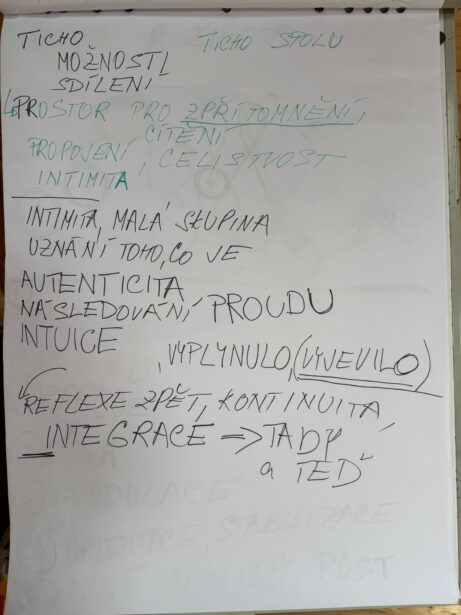 TICHO
TICHO SPOLU
MOŽNOSTI
SDÍLENÍ
PROSTOR PRO ZPŘÍTOMNĚNÍ,
CÍTĚNÍ
PROPOJENÍ, CELISTVOST
INTIMITA
INTIMITA, MALÁ SKUPINA
UZNÁNÍ TOHO, CO JE
AUTENTICITA
NÁSLEDOVÁNÍ PROUDU
INTUICE
, VYPLYNULO, (VYJEVILO)
REFLEXE ZPĚT, KONTINUITA
INTEGRACE => TADY
a TEĎ
ORIENTACE, STABILIZACE
RŮST